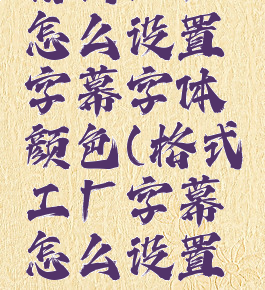 怎么设置
字幕字体
颜色(格式
工厂字幕
怎么设置